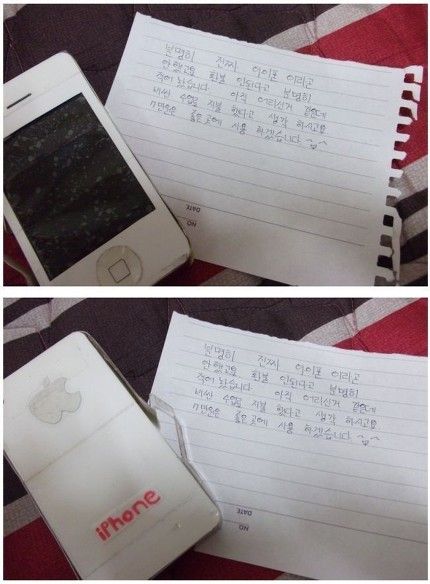 분명히 진짜 아이폰 이라곤
안했고요 환불 안된다고 분명히
적어 놨습니다 아직 어리신거 같은데
비싼 수업료 지불 했다고 생각 하시고요
7만원은 좋은곳에 사용 하겠습니다 ^_^
DATE
NO
분명히 진짜 아이폰 이라곤
안했고요 환불 안된다고 분명히
적어 놨습니다 아직 어리신거 같은데
비싼 수업료 지불 했다고 생각 하시고요
7만원은 좋은곳에 사용 하겠습니다 ^_^
iPhone
DATE
NO